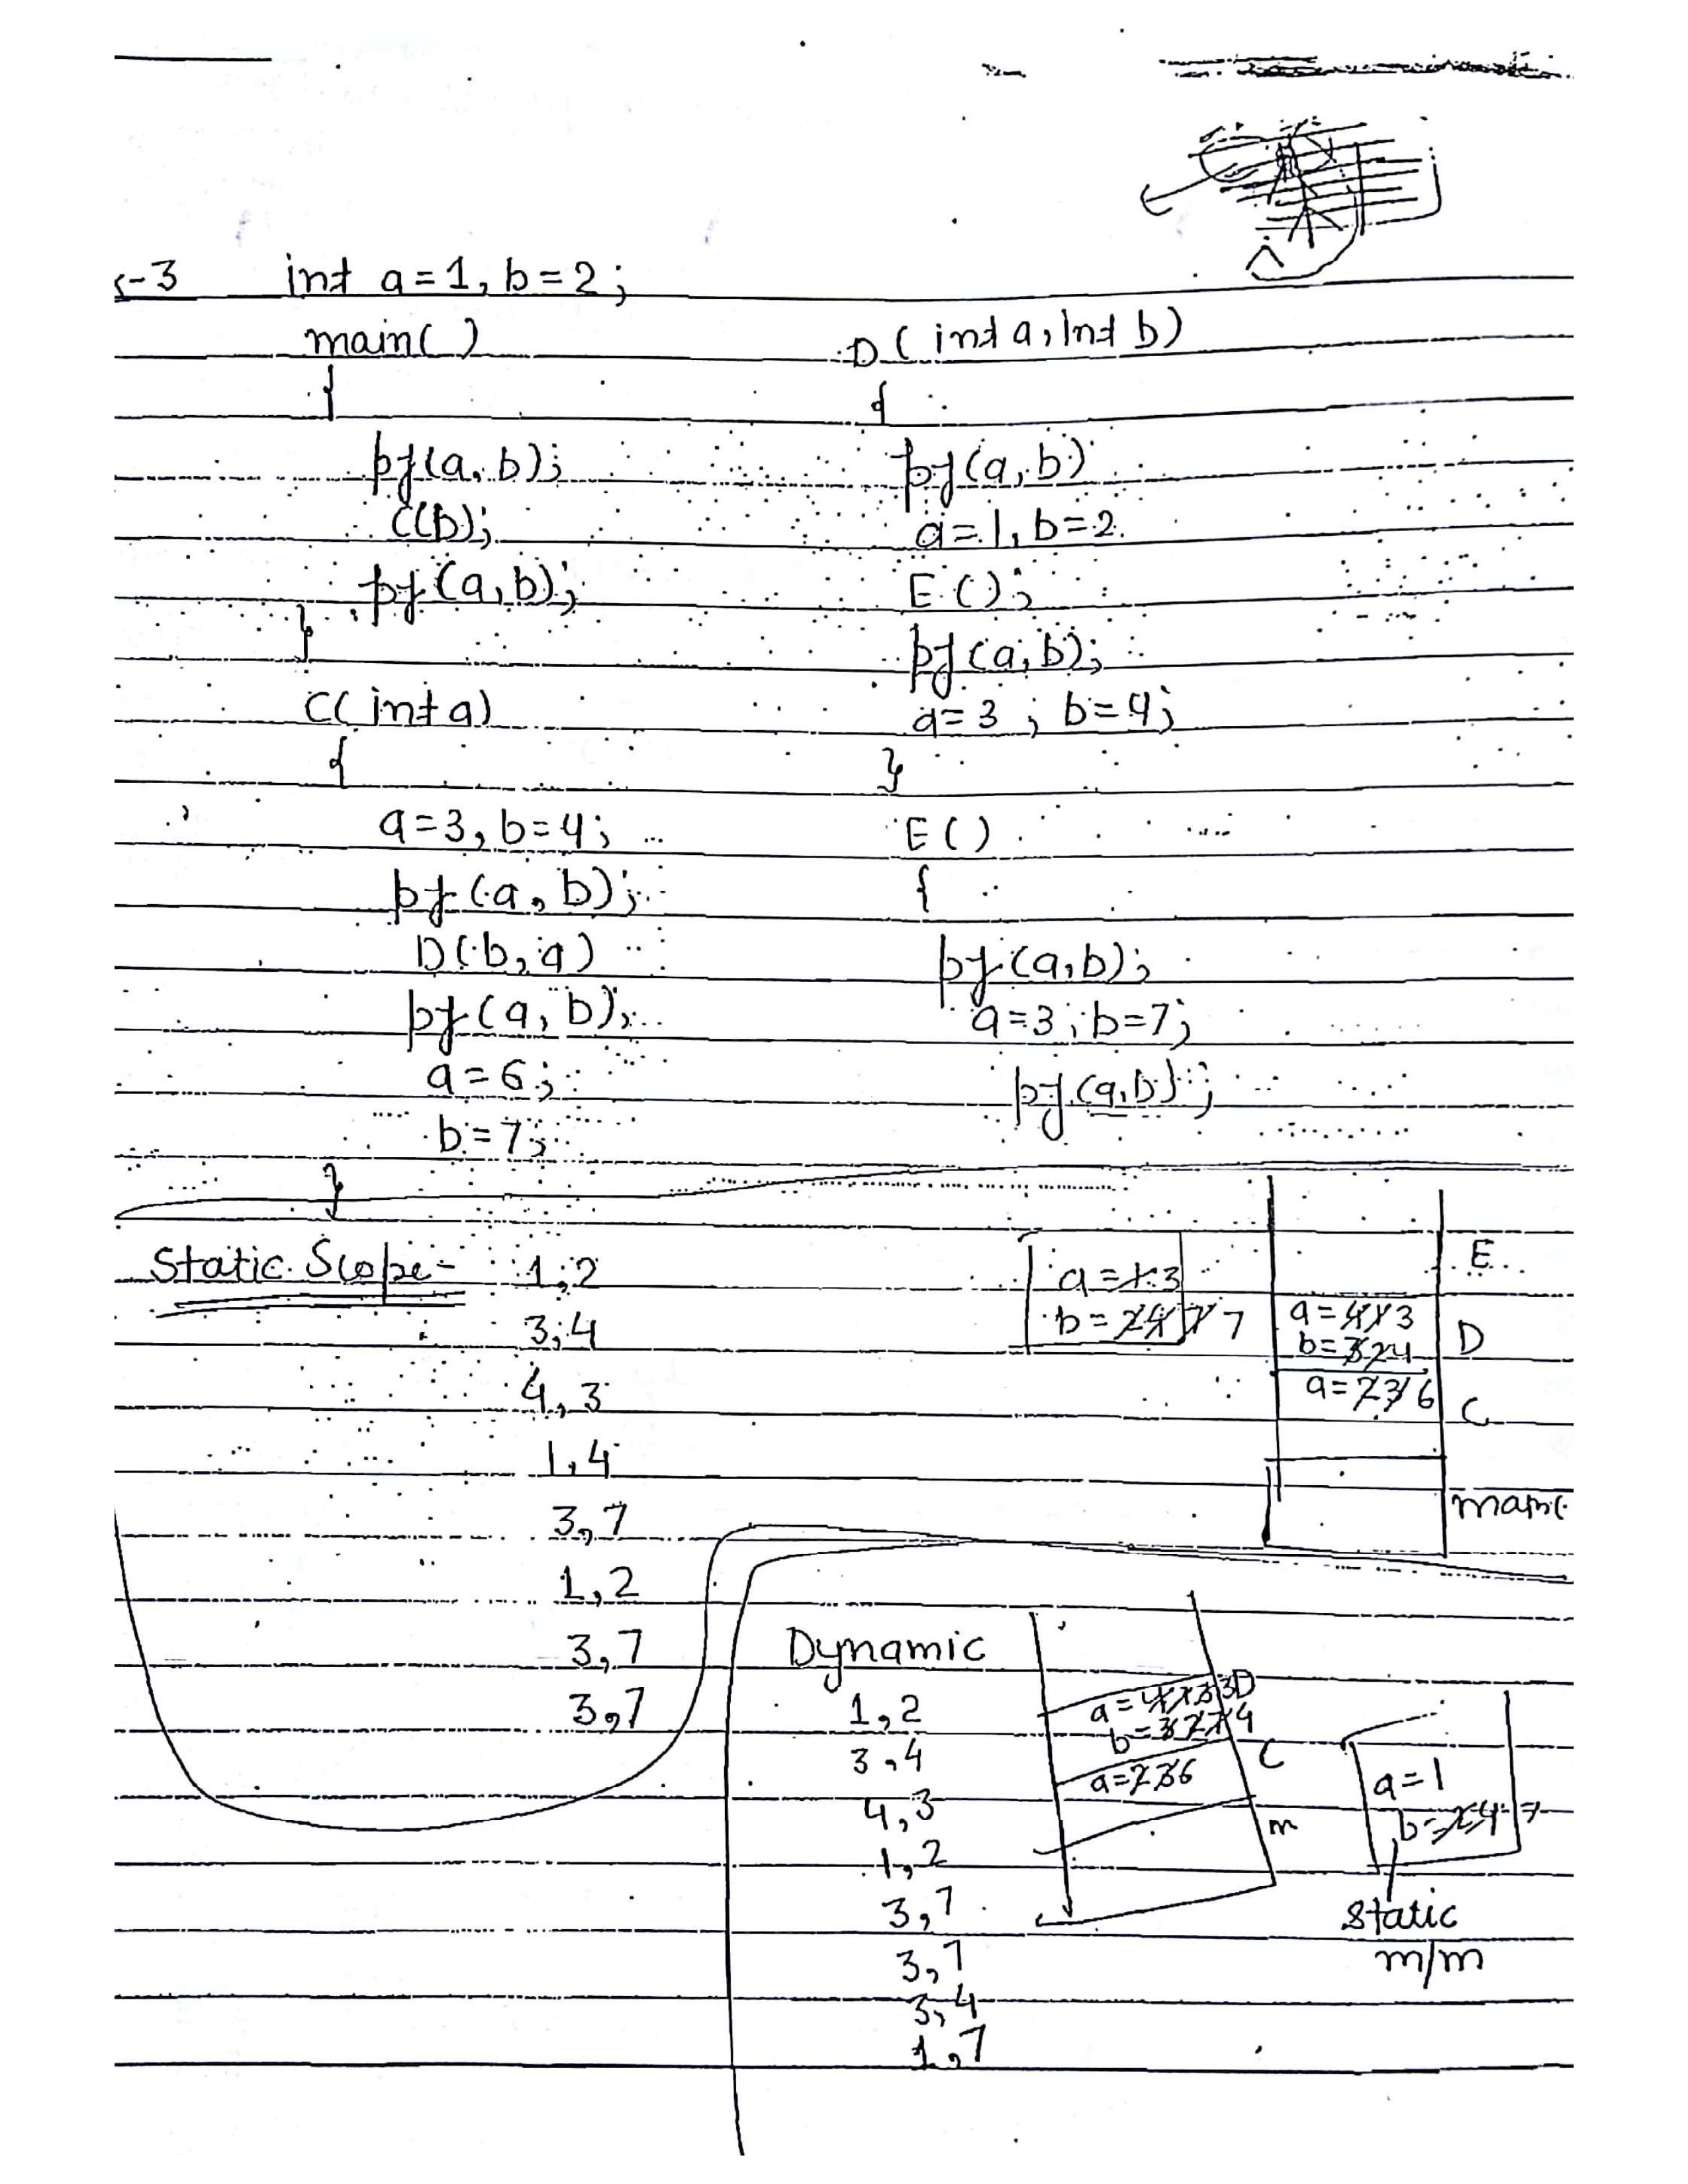 -3 int a=1, b=2;
main( )
{
pf(a, b);
C(b);
pf(a, b);
}
C(int a)
{
a=3, b=4;
pf(a, b);
D(b, a)
pf(a, b);
a=6;
b=7;
}
D(int a, int b)
{
pf(a, b)
a=1, b=2.
E();
pf(a, b);
a=3; b=4;
}
E()
{
pf(a,b);
a=3; b=7;
pf(a,b);
Static Scope-
1,2
3,4
4,3
1,4
3,7
1,2
3,7
3,7
a=1 3
b=2 4 7 7
E
a=4 1 3
b=3 2 4
D
a=2 3 6
C
main(
Dynamic
1,2
3,4
4,3
1,2
3,7
3,7
3,4
1,7
a=4 1 3 3 D
b=3 2 7 4
a=2 3 6
C
m
a=1
b=2 4 7
Static
m/m